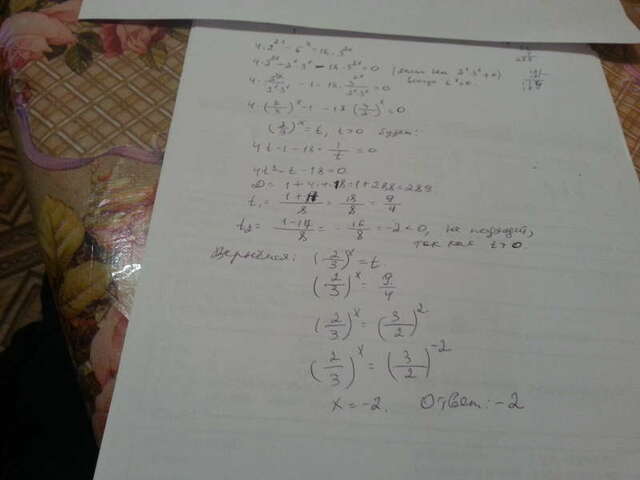 4·2^{2x} - 6^x = 18·3^{2x}
4·2^{2x} - 2^x·3^x - 18·3^{2x} = 0
4·\frac{2^{2x}}{2^x·3^x} - 1 - 18·\frac{3^{2x}}{2^x·3^x} = 0
4·(\frac{2}{3})^x - 1 - 18(\frac{3}{2})^x = 0
(\frac{2}{3})^x = t, t>0 будет:
4t - 1 - 18·\frac{1}{t} = 0
4t² - t - 18 = 0
D = 1 + 4·4·18 = 1 + 288 = 289
t₁ = \frac{1+17}{8} = \frac{18}{8} = \frac{9}{4}
t₂ = \frac{1-17}{8} = -\frac{16}{8} = -2 < 0, не подходит,
так как t>0.
Вернёмся: (\frac{2}{3})^x = t.
(\frac{2}{3})^x = \frac{9}{4}
(\frac{2}{3})^x = (\frac{3}{2})^2
(\frac{2}{3})^x = (\frac{3}{2})^{-2}
x = -2. Ответ: -2